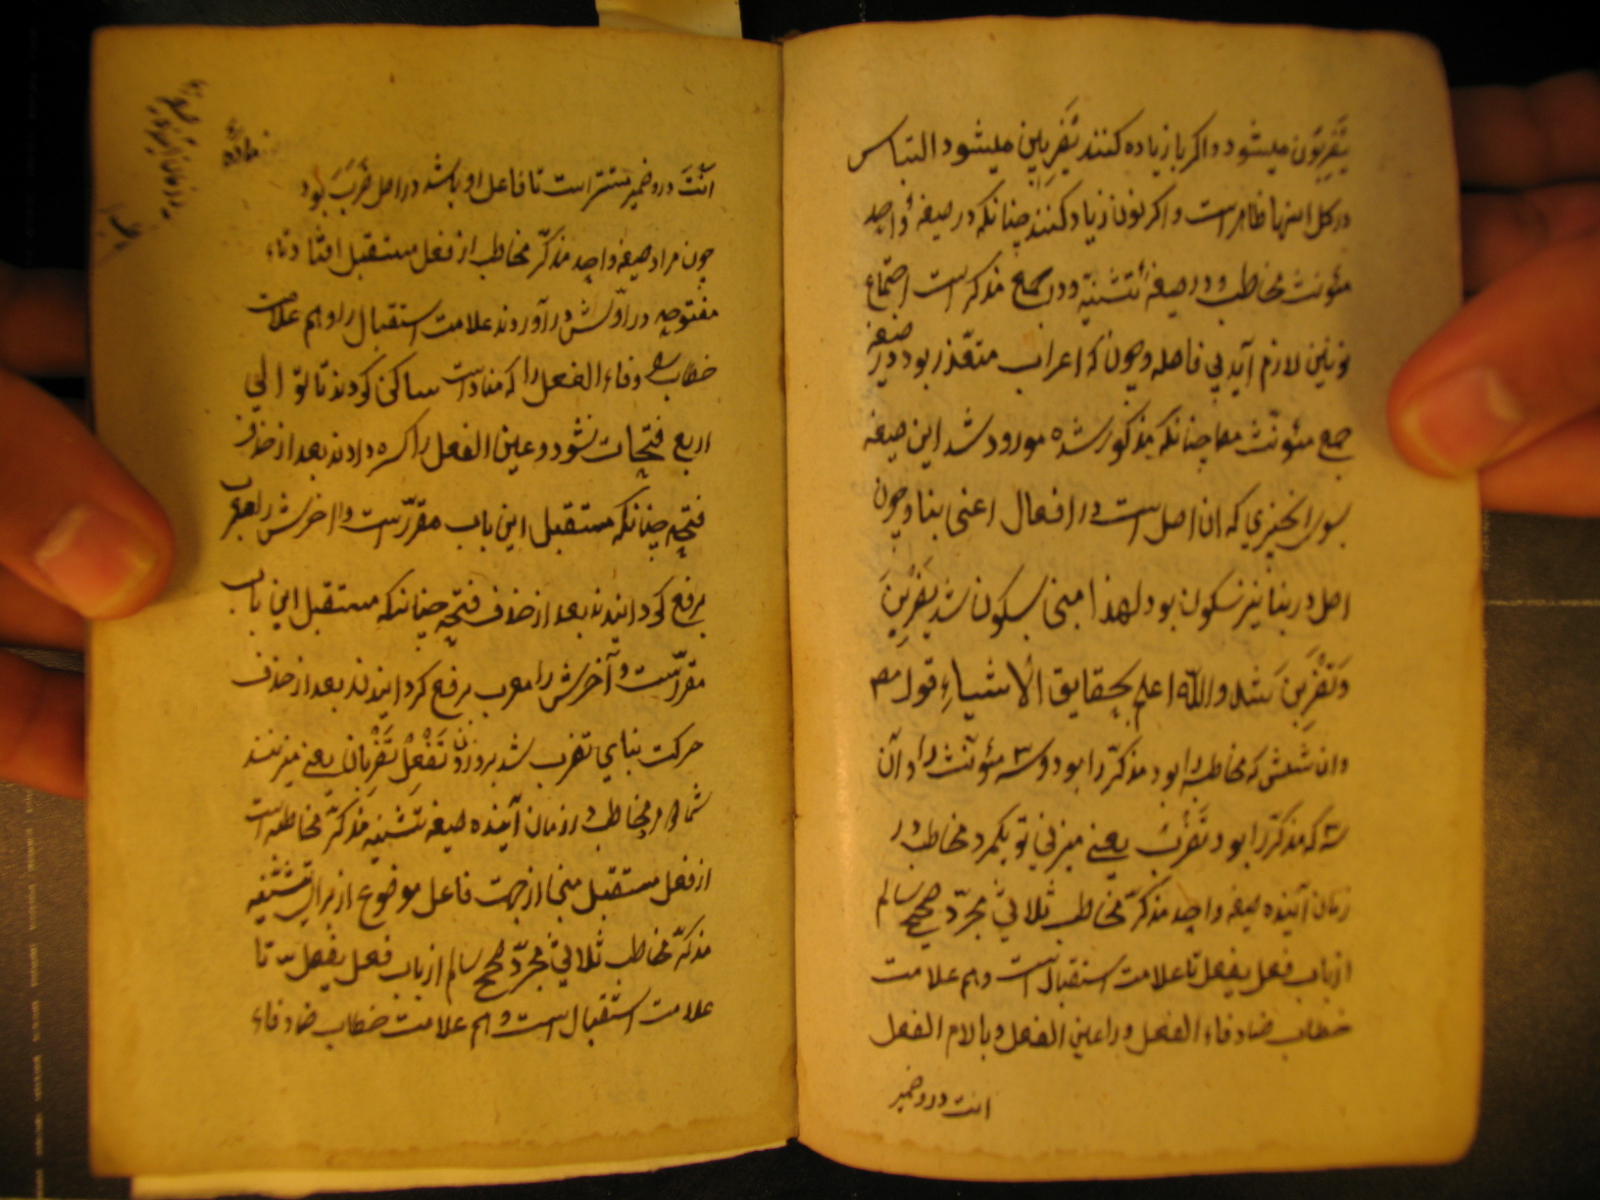 یَضْرِبُون میشود واکر یا زیاده کنند یَضْرِبِین میشود التباس
در کل اینها ظاهر است واکر نون زیاد کنند چنانکه در صیغهٔ واحد
مؤنث مخاطب ودر صیغهٔ تثنیه ودر جمع مذکر است اجتماع
نونین لازم آید بی فاصله وچون که اعراب متعذر بود در صیغه
جمع مؤنث معا چنانکه مذکور شده مورود شد این صیغه
بسوی آنچیزی که ان اصل است در افعال اعنی بنا وچون
اصل در بنا نیز سکون بود لهذا مبنی بسکون شد یَضْرِبْنَ
وَتَضْرِبْنَ شد والله اعلم بحقایق الاشیاء قوله مص
وان شش که مخاطب را بود مذکر را بود وسه مؤنث را وآن
سه که مذکر را بود تَضْرِبُ یعنے میزنی تو یکمرد مخاطب در
زمان آینده صیغه واحد مذکر مخاطب ثلاثی مجرد صحیح سالم
از باب فعل یفعل تا علامت استقبال است وهم علامت
خطاب ضاد فاء الفعل ورا عین الفعل وبا لام الفعل
انت درو ضمیر
انتَ درو ضمیر مستتر است تا فاعل او باشد در اصل ضَرَبَ بود
چون مراد صیغه واحد مذکر مخاطب از فعل مستقبل افتاد تاء
مفتوحه در اولش در آوردند علامت استقبال را وهم علامت
خطاب وفاء الفعل را که ضاد است ساکن کردند تا توالی
اربع فتحات نشود وعین الفعل را کسره دادند بعد از حذف
فتحه چنانکه مستقبل این باب مقررست واخرش را معرب
برفع کردانیدند بعد از حذف فتحه چنانکه مستقبل این باب
مقررست وآخرش را معرب برفع کردانیدند بعد از حذف
حرکت بنای تضرب شد بروزن تَفْعِلُ تَضْرِبَانِ یعنے میزنند
شما دو مرد مخاطب در زمان آینده صیغه تثنیه مذکر مخاطب است
از فعل مستقبل مبنی از جهت فاعل موضوع از برای تثنیه
مذکر مخاطب ثلاثی مجرد صحیح سالم از باب فعل یفعل تا
علامت استقبال است وهم علامت خطاب ضاد فاء